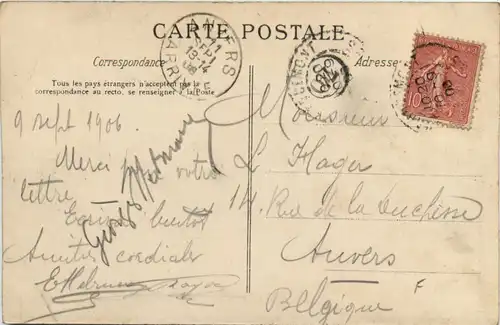 CARTE POSTALE
Correspondance
Adresse
Tous les pays étrangers n'acceptent pas la
correspondance au recto, se renseigner à la Poste
ANVERS
11
SEPT
13-14
ARRIVÉE
10
9 sept 1906
Merci votre
lettre
Ecrivez bientôt
Amitiés cordiales
Monsieur
L Hager
14 Rue de la Duchesse
Anvers
Belgique